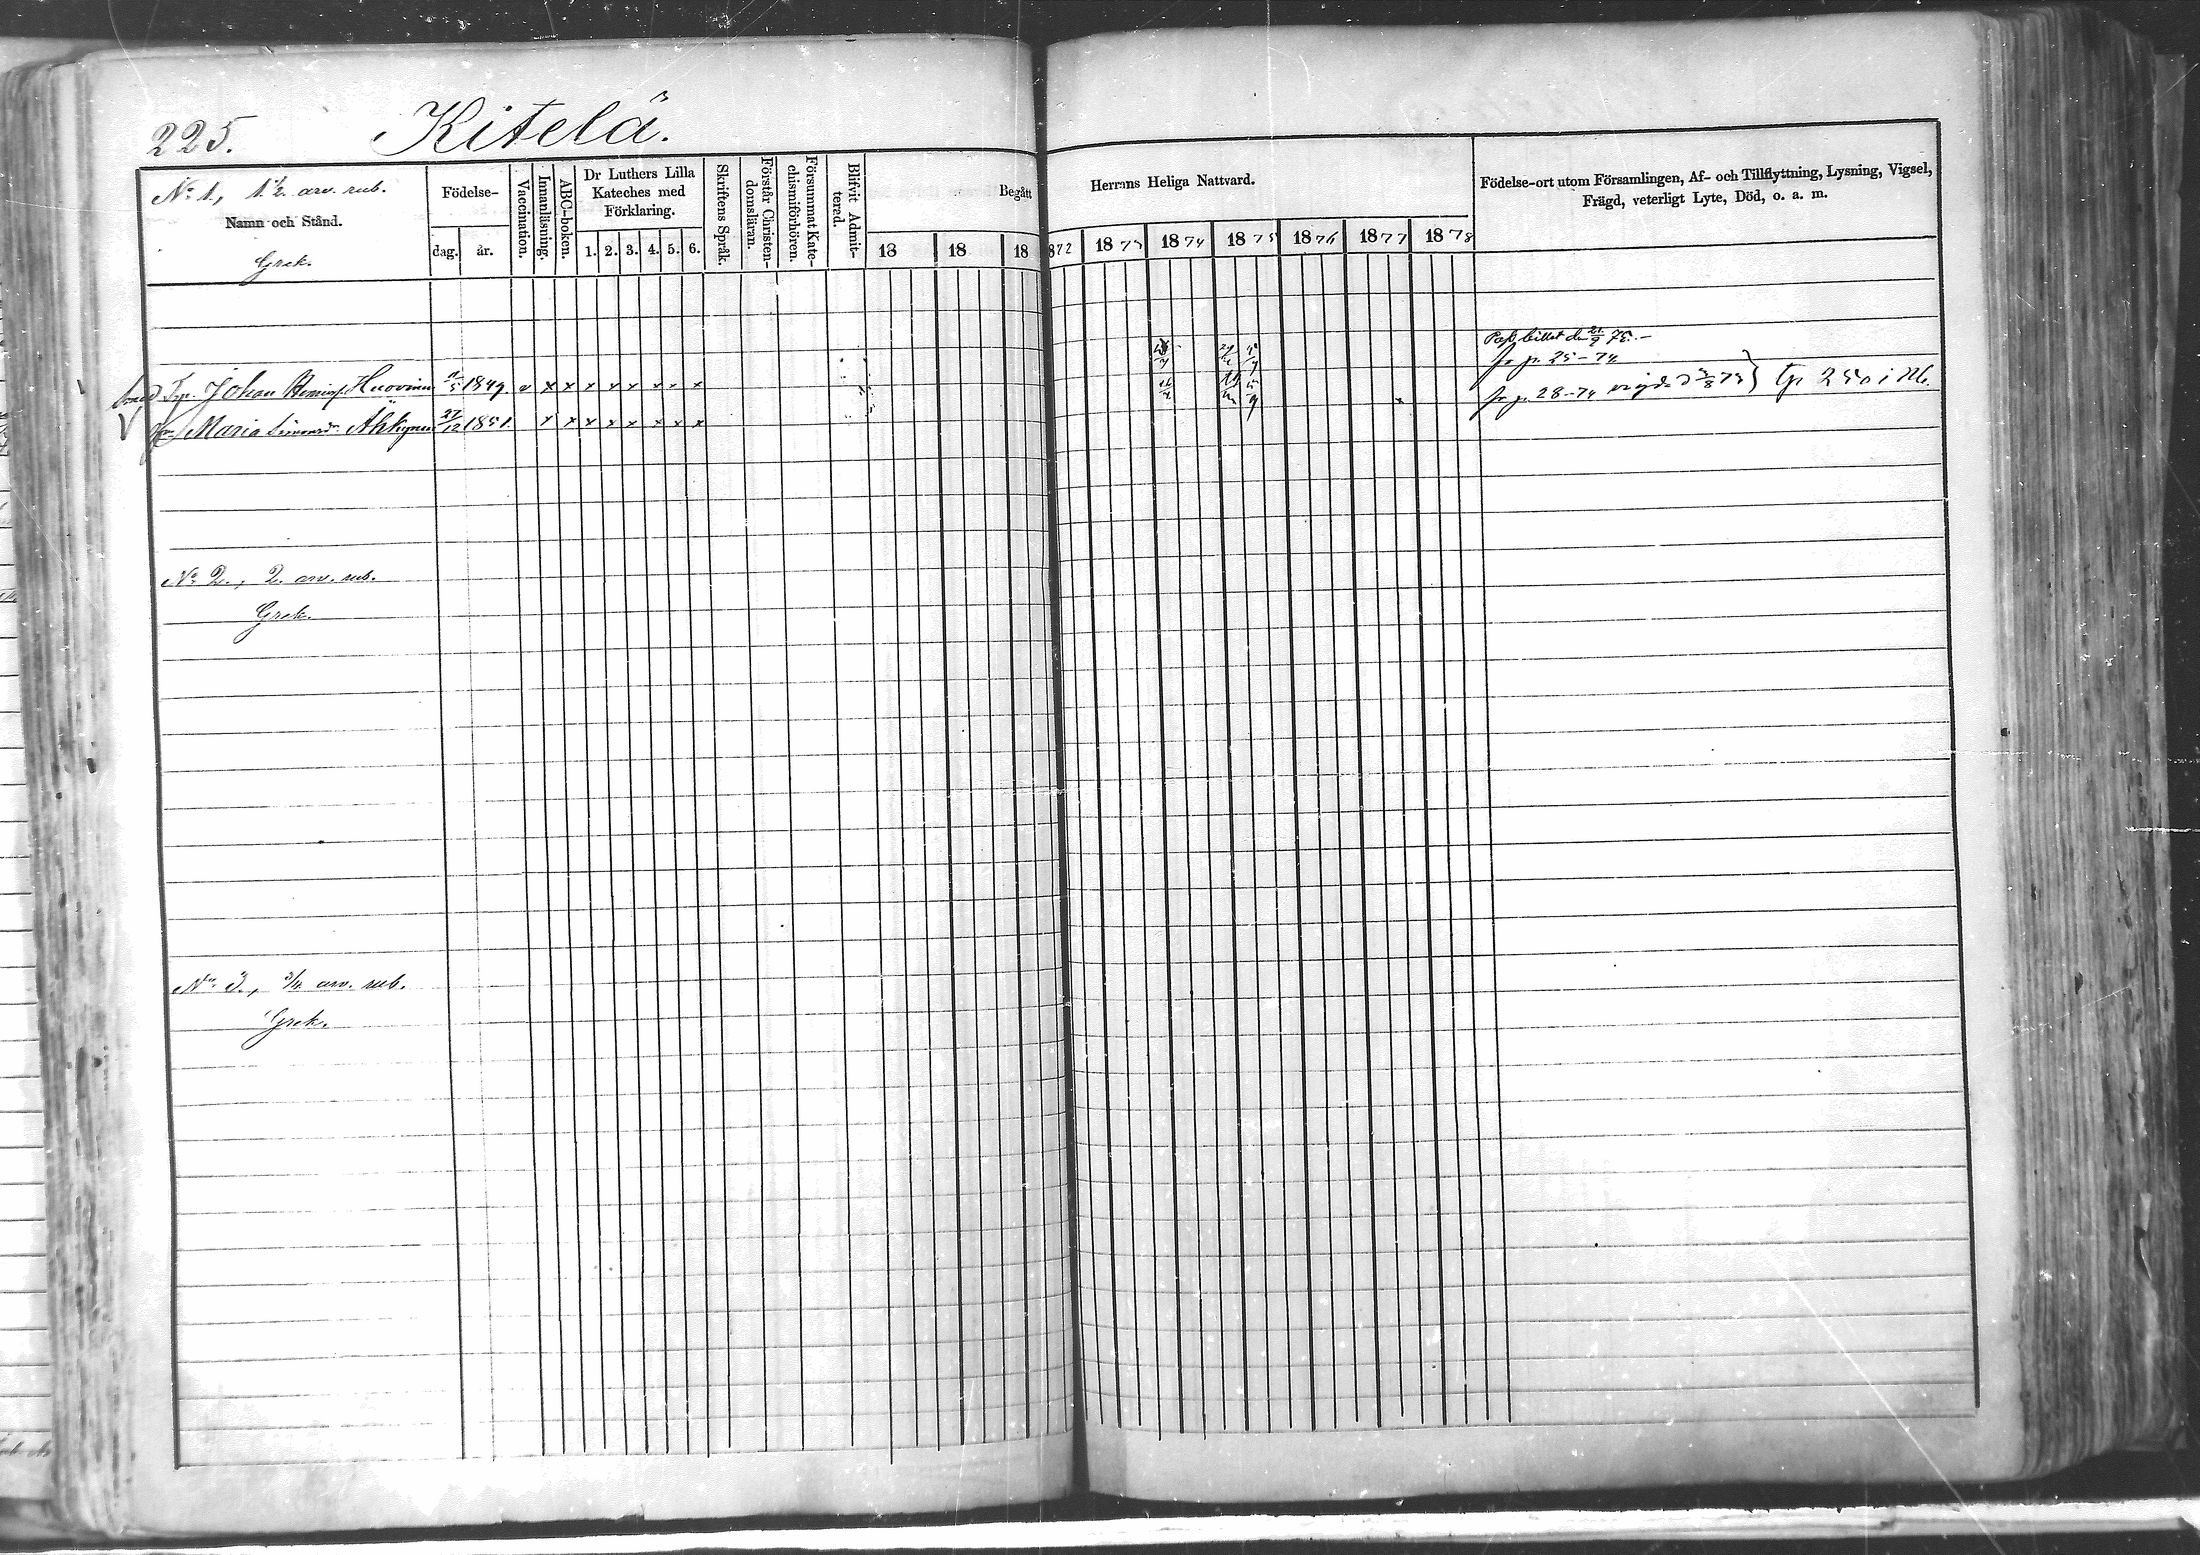 225. Kitelä.
No 1, 1 1/2 arv. rub.
Namn och Stånd.
Grek.
Födelse-
dag. år.
Vaccination.
Innanläsning.
ABC-boken.
Dr Luthers Lilla
Kateches med
Förklaring.
1. 2. 3. 4. 5. 6.
Skriftens Språk.
Förstår Christen-
domsläran.
Försummat Kate-
chismiförhören.
Blifvit Admit-
terad.
Begått Herrans Heliga Nattvard.
18 18 1872 1873 1874 1875 1876 1877 1878
Födelse-ort utom Församlingen, Af- och Tillflyttning, Lysning, Vigsel,
Frägd, veterligt Lyte, Död, o. a. m.
Johan Huovinen 1/5 1849. v x x x x x x x x
Maria Ahkynen 27/12 1851. x x x x x x x x
Pass billet den 21/9 75.
fr p. 25-74
fr p. 28-74 vigde d 3/8 73 } Tp 250 i Nb.
No 2., 2. arv. rub.
Grek.
No 3., 3/4 arv. rub.
Grek.